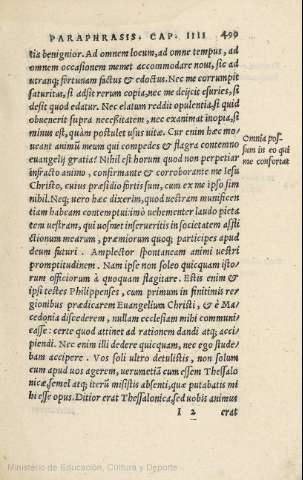 PARAPHRASIS. CAP. IIII 499
tia benignior. Ad omnem locum, ad omne tempus, ad
omnem occasionem memet accommodare noui, sic ad
utranq; fortunam factus & edoctus. Nec me corrumpit
saturitas, si adsit rerum copia, nec me deijcit esuries, si
desit quod edatur. Nec elatum reddit opulentia, si quid
obuenerit supra necessitatem, nec exanimat inopia, si
minus est, quàm postulet usus uitæ. Cur enim hæc mo
ueant animũ meum qui compedes & flagra contemno
euangelij gratia? Nihil est horum quod non perpetiar
infracto animo, confirmante & corroborante me Iesu
Christo, cuius præsidio fortis sum, cum ex me ipso sim
nihil. Neq; uero hæc dixerim, quod uestram munificen
tiam habeam contemptui: imò uehementer laudo pieta
tem uestram, qui uosmet inserueritis in societatem affli
ctionum mearum, præmiorum quoq; participes apud
deum futuri. Amplector spontaneam animi uestri
promptitudinem. Nam ipse non soleo quicquam isto/
rum officiorum à quoquam flagitare. Estis enim &
ipsi testes Philippenses, cum primum in finitimis re
gionibus prædicarem Euangelium Christi, & è Ma
cedonia discederem, nullam ecclesiam mihi communi
casse: certe quod attinet ad rationem dandi atq; acci/
piendi. Nec enim illi dedere quicquam, nec ego stude/
bam accipere. Vos soli ultro detulistis, non solum
cum apud uos agerem, uerumetiã cum essem Thessalo
nicæ, semel atq; iterũ misistis absenti, quæ putabatis mi
hi esse opus. Ditior erat Thessalonica, sed uobis animus
I 2 erat
Omnia pos-
sum in eo qui
me confortat
Ministerio de Educación, Cultura y Deporte